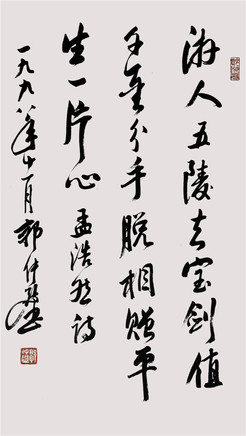 游人五陵去宝剑值
千金分手脱相赠平
生一片心孟浩然诗
一九九八年十一月郭仲